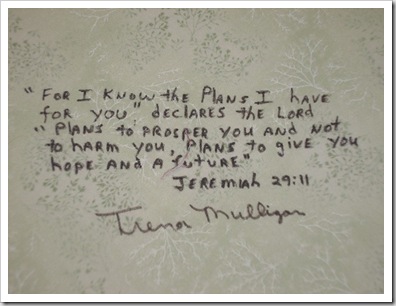 "For I know the Plans I have
for you" declares the Lord
"Plans to prosper you and not
to harm you, Plans to give you
hope and a future"
Jeremiah 29:11
Mulligan